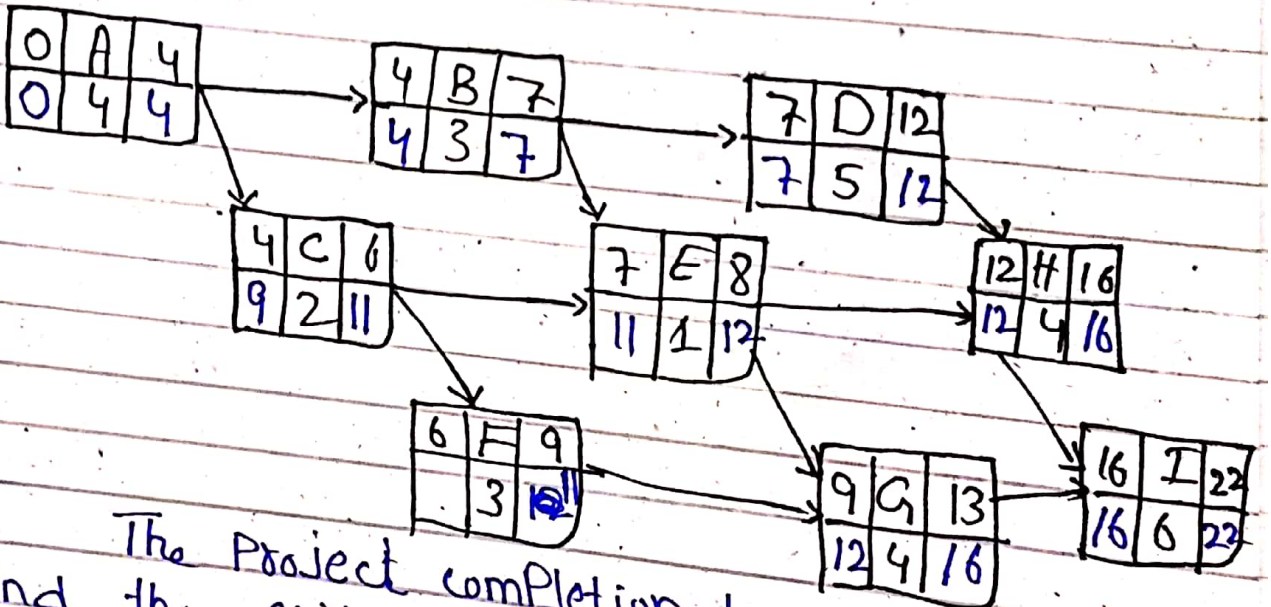 0 A 4
0 4 4
4 B 7
4 3 7
7 D 12
7 5 12
4 C 6
9 2 11
7 E 8
11 1 12
12 H 16
12 4 16
6 F 9
3 11
9 G 13
12 4 16
16 I 22
16 6 22
The Project completion